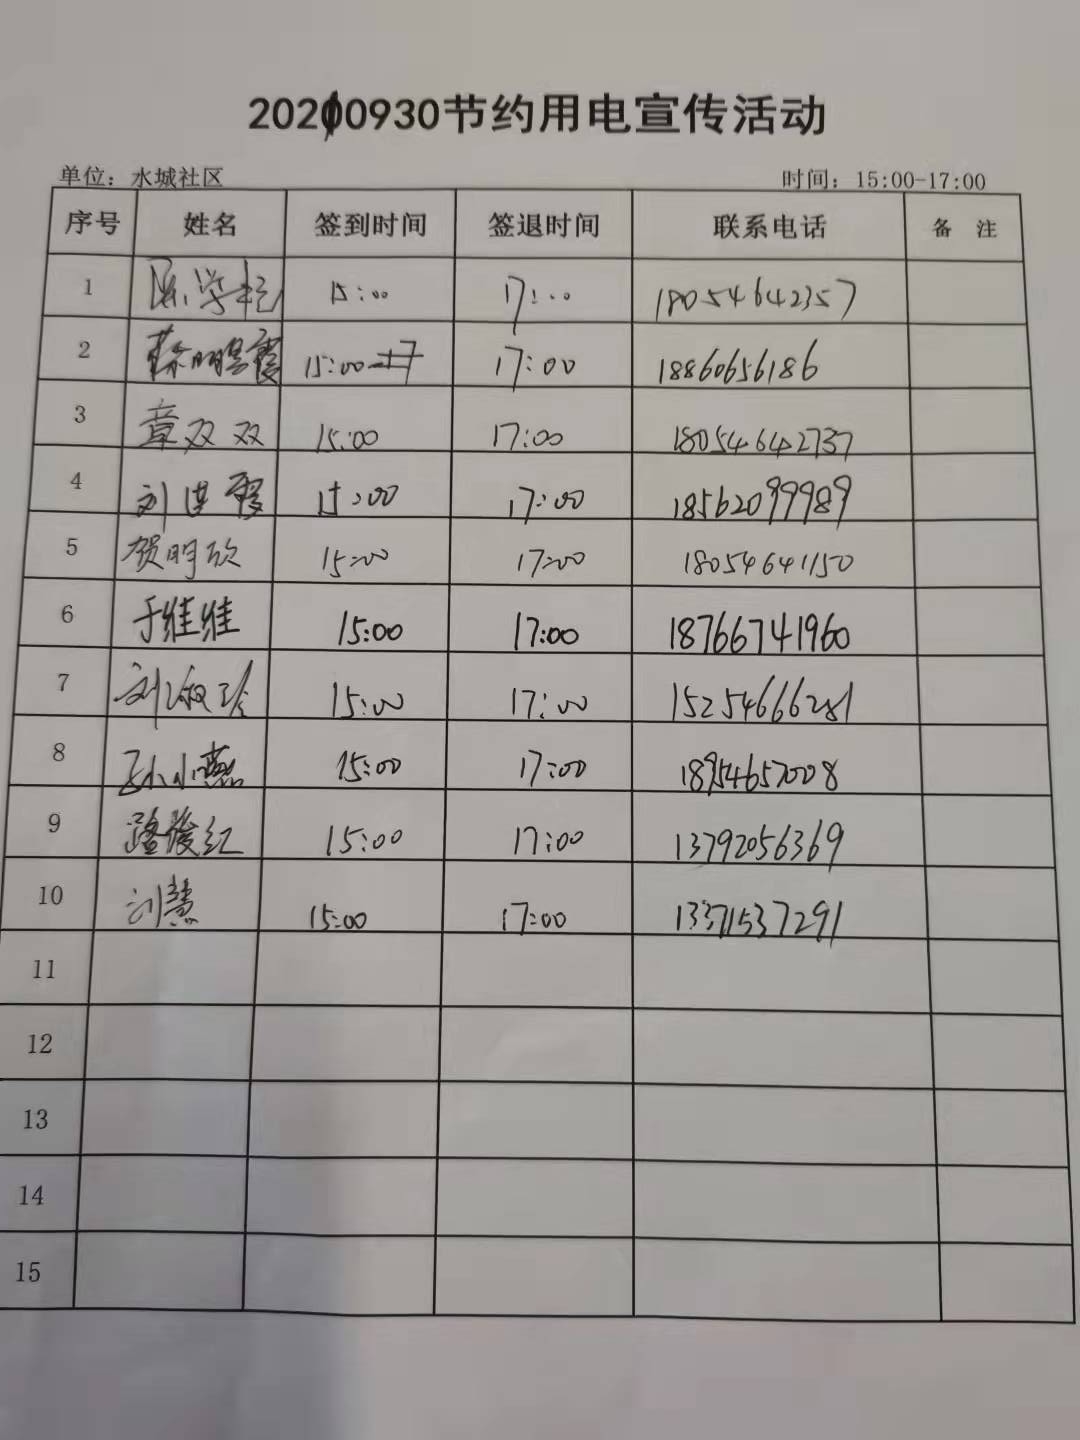 20210930节约用电宣传活动
单位：水城社区 时间：15:00-17:00
序号 姓名 签到时间 签退时间 联系电话 备 注
1 15:00 17:00 18054642357
2 15:00 17:00 18860656186
3 章双双 15:00 17:00 18054642737
4 刘洪霞 15:00 17:00 18562099989
5 贺明欣 15:00 17:00 18054641150
6 于维维 15:00 17:00 18766741960
7 刘淑玲 15:00 17:00 15254666281
8 孙小燕 15:00 17:00 18954657008
9 路俊红 15:00 17:00 13792056369
10 刘慧 15:00 17:00 13371537291
11
12
13
14
15